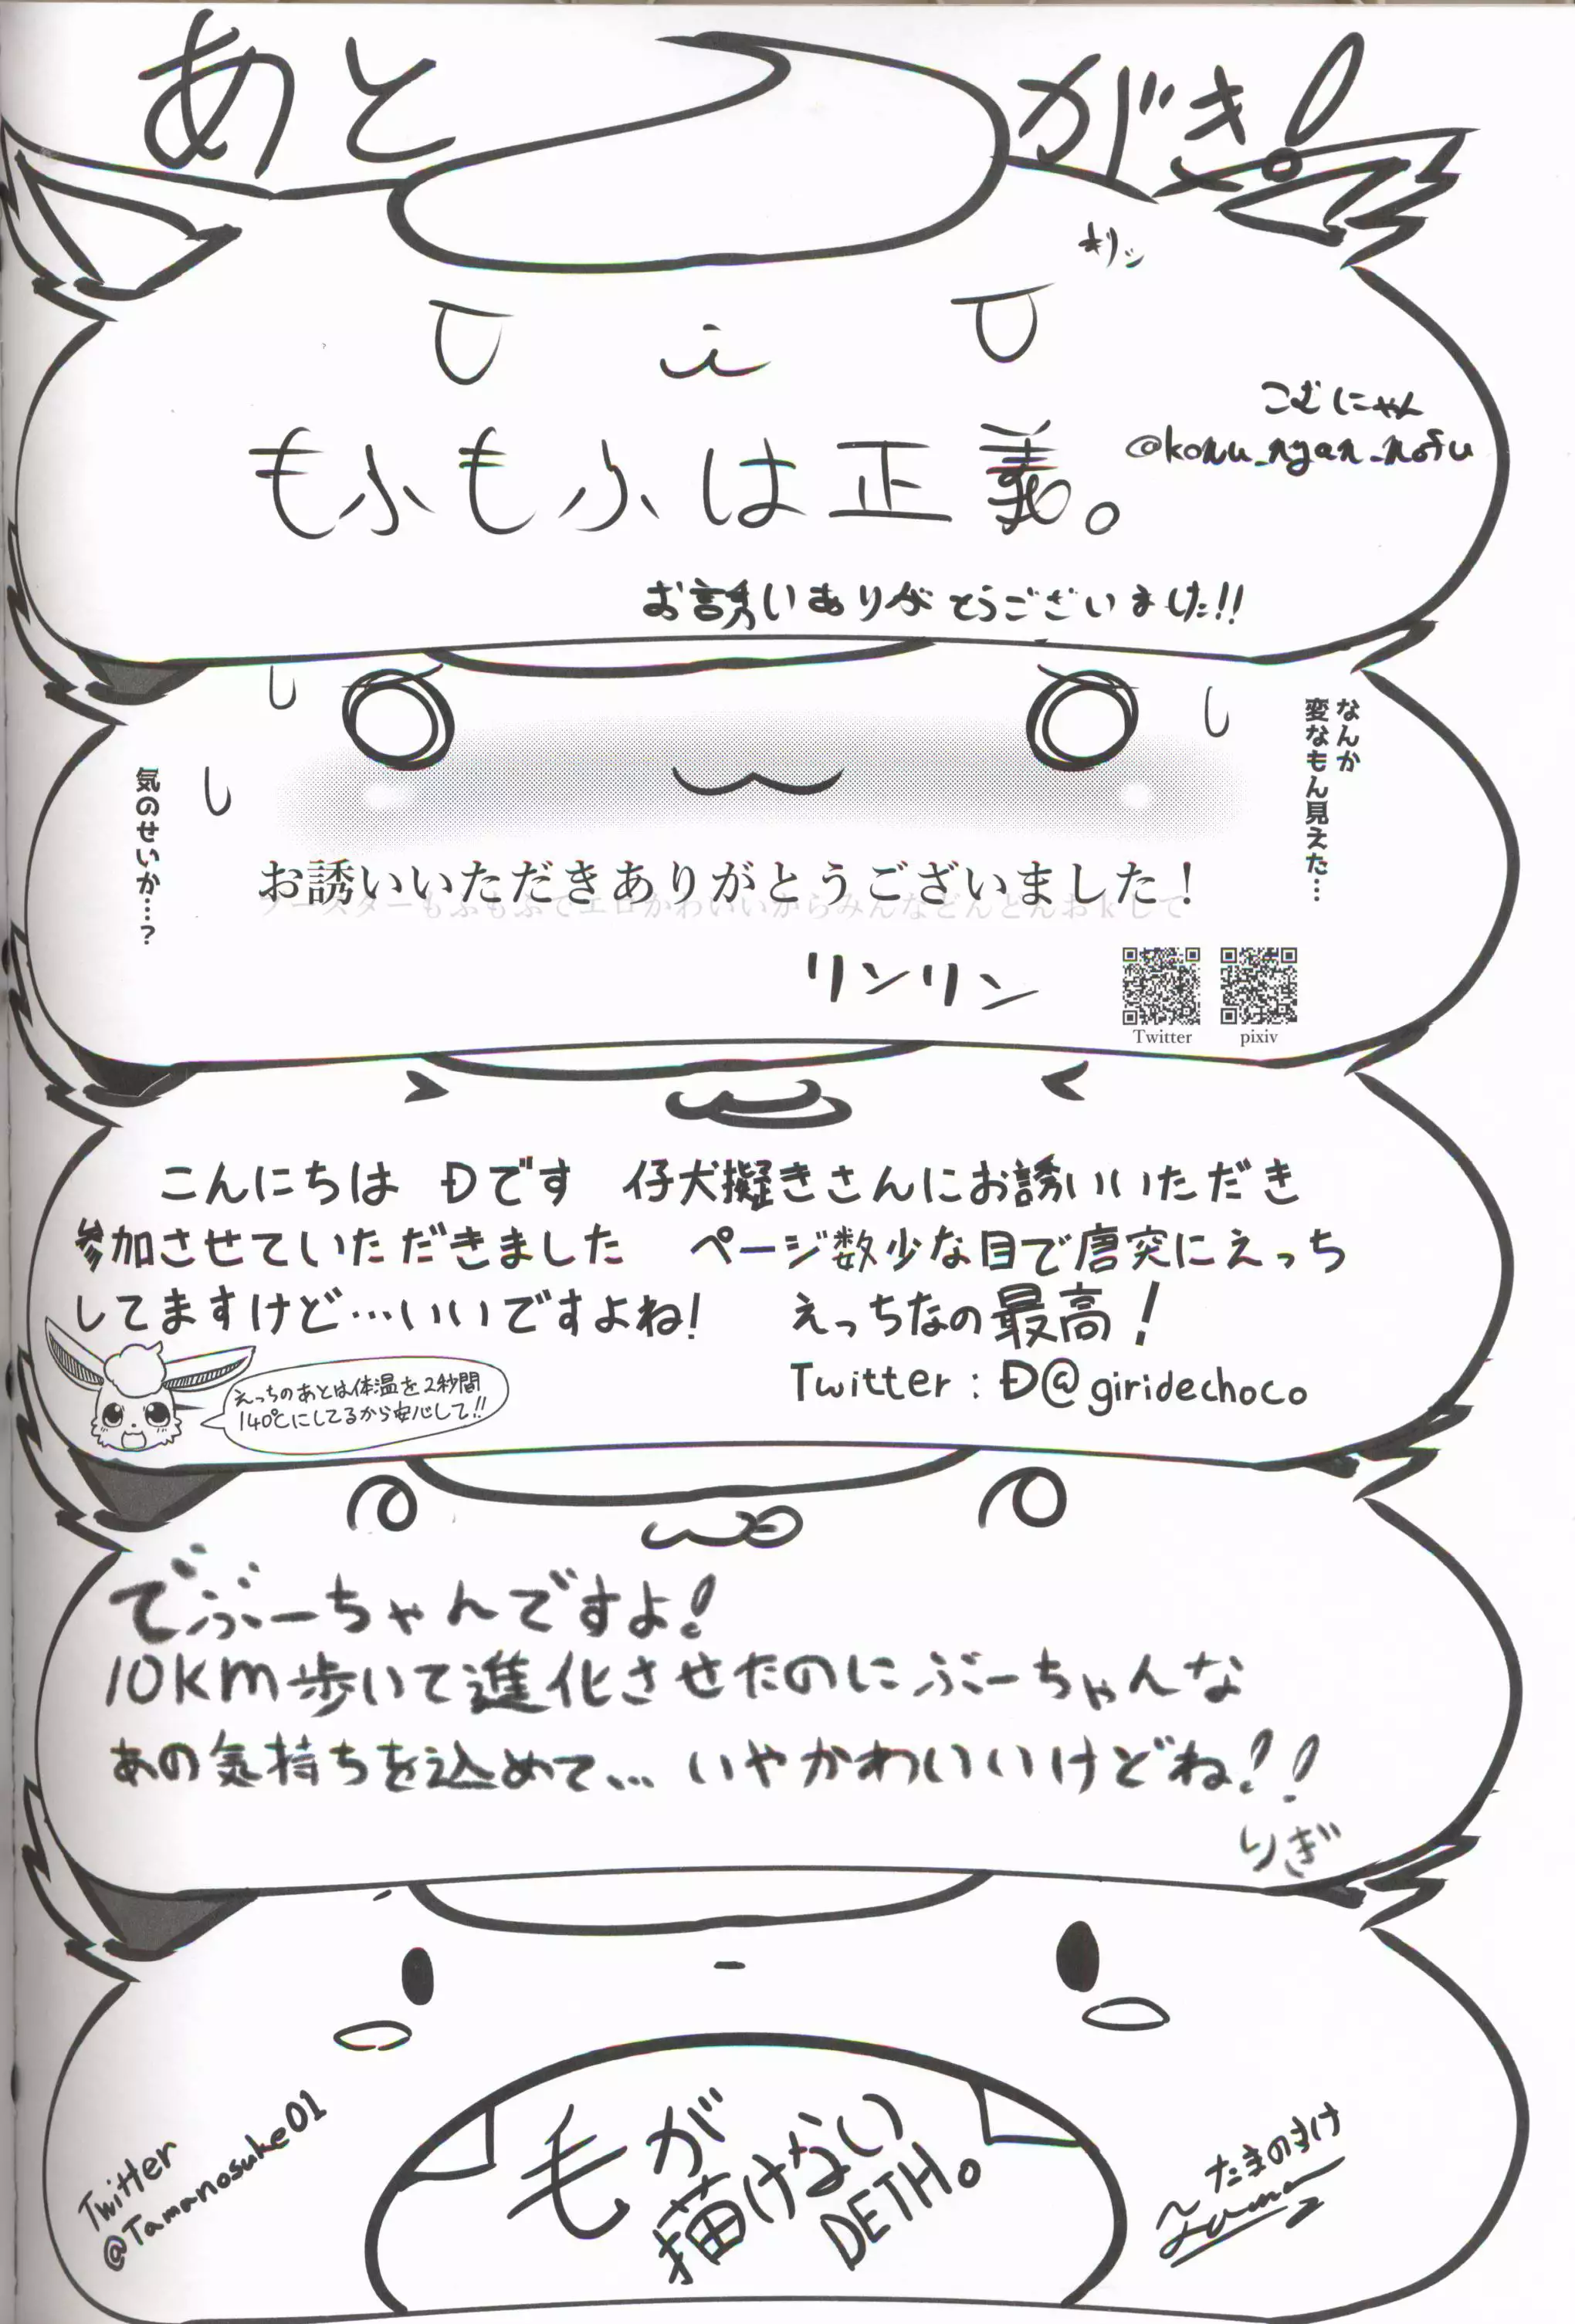 あとがき!
キリッ
こむにゃん
@komu_nyan_mofu
もふもふは正義。
お誘いありがとうございました!!
なんか
変なもん見えた…
気のせいか…?
お誘いいただきありがとうございました!
ブースターもふもふでエロかわいいからみんなどんどんおkして
リンリン
Twitter
pixiv
こんにちは Đです 仔犬擬きさんにお誘いいただき
参加させていただきました ページ数少な目で唐突にえっち
してますけど…いいですよね! えっちなの最高!
えっちのあとは体温を2秒間
140℃にしてるから安心して!!
Twitter:Đ@giridechoco
でぶーちゃんですよ!
10KM歩いて進化させたのにぶーちゃんな
あの気持ちを込めて… いやかわいいけどね!!
りぎ
毛が
描けない
DETH。
Twitter
@Tamanosuke01
たまのすけ